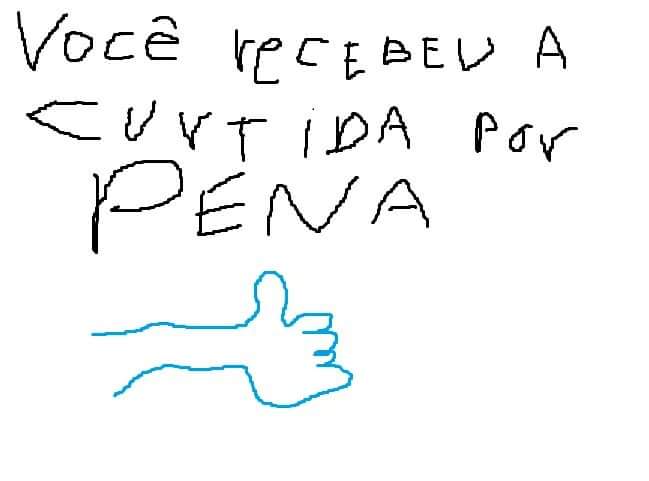 Você recebeu a
curtida por
PENA